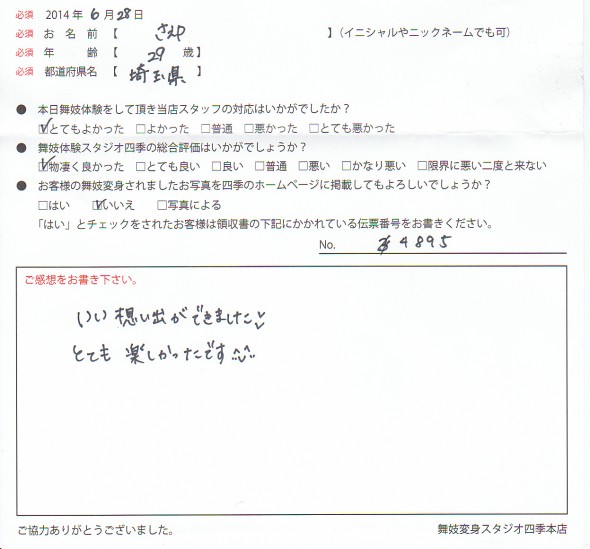 必須 2014年 6月 28日
必須 お名前【 さえ 】(イニシャルやニックネームでも可)
必須 年齢【 29 歳】
必須 都道府県名【 埼玉県 】
● 本日舞妓体験をして頂き当店スタッフの対応はいかがでしたか?
☑とてもよかった □よかった □普通 □悪かった □とても悪かった
● 舞妓体験スタジオ四季の総合評価はいかがでしょうか?
☑物凄く良かった □とても良い □良い □普通 □悪い □かなり悪い □限界に悪い二度と来ない
● お客様の舞妓変身されましたお写真を四季のホームページに掲載してもよろしいでしょうか?
□はい ☑いいえ □写真による
「はい」とチェックをされたお客様は領収書の下記にかかれている伝票番号をお書きください。
No. 4895
ご感想をお書き下さい。
いい想い出ができました
とても楽しかったです
ご協力ありがとうございました。
舞妓変身スタジオ四季本店